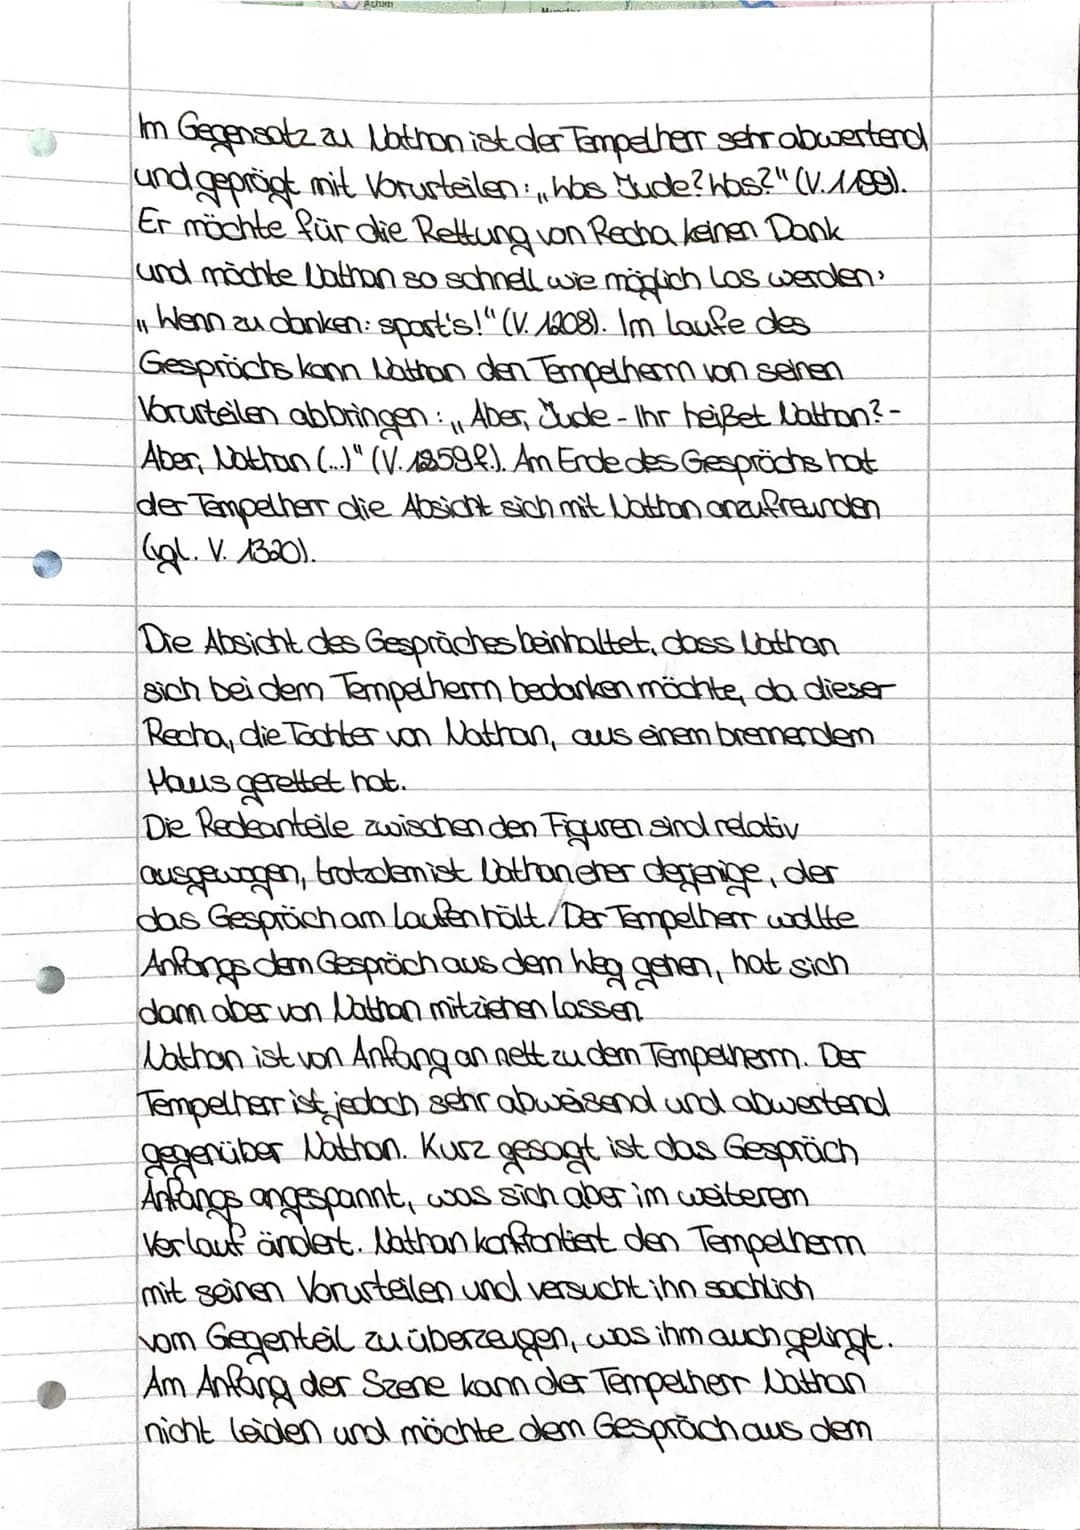 Im Gegensatz zu Nathan ist der Tempelherr sehr abwertend
und geprägt mit Vorurteilen: „Was Jude? Was?" (V. 1199).
Er möchte für die Rettung von Recha keinen Dank
und möchte Nathan so schnell wie möglich los werden:
„Wenn zu danken: spart's!" (V. 1208). Im Laufe des
Gesprächs kann Nathan den Tempelherrn von seinen
Vorurteilen abbringen: „Aber, Jude - Ihr heißet Nathan? -
Aber, Nathan (...)" (V. 1259 f.). Am Ende des Gesprächs hat
der Tempelherr die Absicht sich mit Nathan anzufreunden
(vgl. V. 1320).
Die Absicht des Gespräches beinhaltet, dass Nathan
sich bei dem Tempelherrn bedanken möchte, da dieser
Recha, die Tochter von Nathan, aus einem brennendem
Haus gerettet hat.
Die Redeanteile zwischen den Figuren sind relativ
ausgewogen, trotzdem ist Nathan eher derjenige, der
das Gespräch am laufen hält. / Der Tempelherr wollte
Anfangs dem Gespräch aus dem Weg gehen, hat sich
dann aber von Nathan mitziehen lassen.
Nathan ist von Anfang an nett zu dem Tempelherrn. Der
Tempelherr ist jedoch sehr abweisend und abwertend
gegenüber Nathan. Kurz gesagt ist das Gespräch
Anfangs angespannt, was sich aber im weiterem
Verlauf ändert. Nathan konfrontiert den Tempelherrn
mit seinen Vorurteilen und versucht ihn sachlich
vom Gegenteil zu überzeugen, was ihm auch gelingt.
Am Anfang der Szene kann der Tempelherr Nathan
nicht leiden und möchte dem Gespräch aus dem